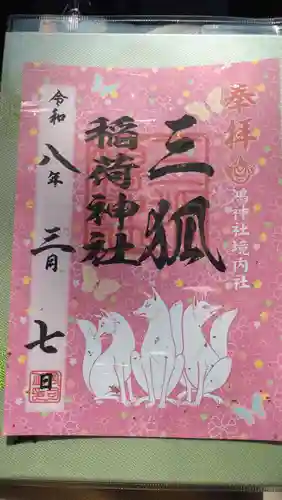 奉拝
鴻神社境内社
三狐
稲荷神社
令和八年三月七日